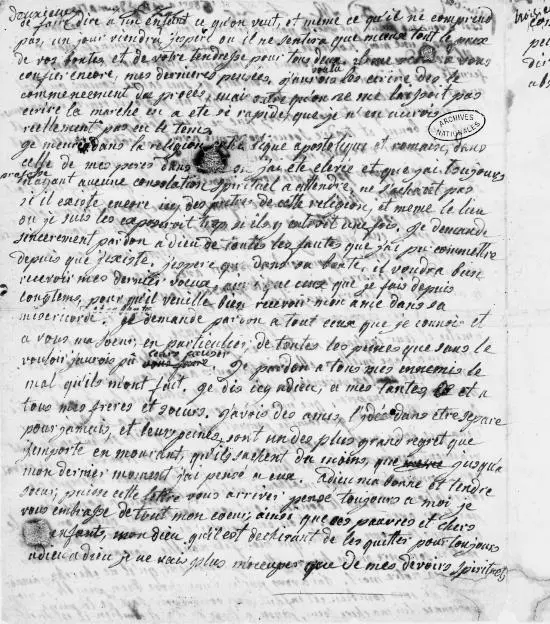 de faire dire a un enfant ce qu'on veut, et même ce qu'il ne comprend
pas, un jour viendra j'espère ou il ne sentira que mieux tout le prix
de vos bontés et de votre tendresse pour tous deux. il me à vous
confier encore, mes dernieres pensées, j'aurois voulu les écrire dès le
commencement du procès, mais outre qu'on ne me laissoit pas
écrire la marche en a été si rapide, que je n'en aurois
réellement pas eu le tems.
je meurs dans la religion catholique apostolique et romaine, dans
celle de mes peres, dans où j'ai été élevée et que j'ai toujours
professée
n'ayant aucune consolation spirituel a attendre, ne sachant pas
si il existe encore ici des prêtres de cette religion, et même le lieu
ou je suis les exposeroit trop si ils y entroit une fois, je demande
sincerement pardon a dieu de toutes les fautes que j'ai pu commettre
depuis que j'existe, j'espère que dans sa bonté, il voudra bien
recevoir mes dernier voeux, ceux que je fais depuis
longtems, pour qu'il veuille bien recevoir mon ame dans sa
misericorde. je demande pardon a tout ceux que je connois et
a vous ma soeur, en particulier, de toutes les peines que sans le
vouloir j'aurois pû leurs causer je pardon a tous mes ennemis le
mal qu'ils m'ont fait. je dis ici adieu, a mes tantes et a
tous mes freres et soeurs. j'avois des amis, l'idée d'en etre separé
pour jamais, et leurs peines, sont un des plus grand regret que
j'emporte en mourant, qu'ils sachent du moins, que jusqu'a
mon dernier moment j'ai pensé a eux. adieu ma bonne et tendre
soeur, puisse cette lettre vous arriver, pensé toujours a moi, je
vous embrasse de tout mon coeur, ainsi que ces pauvres et chers
enfants, mon dieu qu'il est dechirant de les quitter pour toujours
adieu adieu, je ne vais plus m'occuper que de mes devoirs spirituels
ARCHIVES
NATIONALES